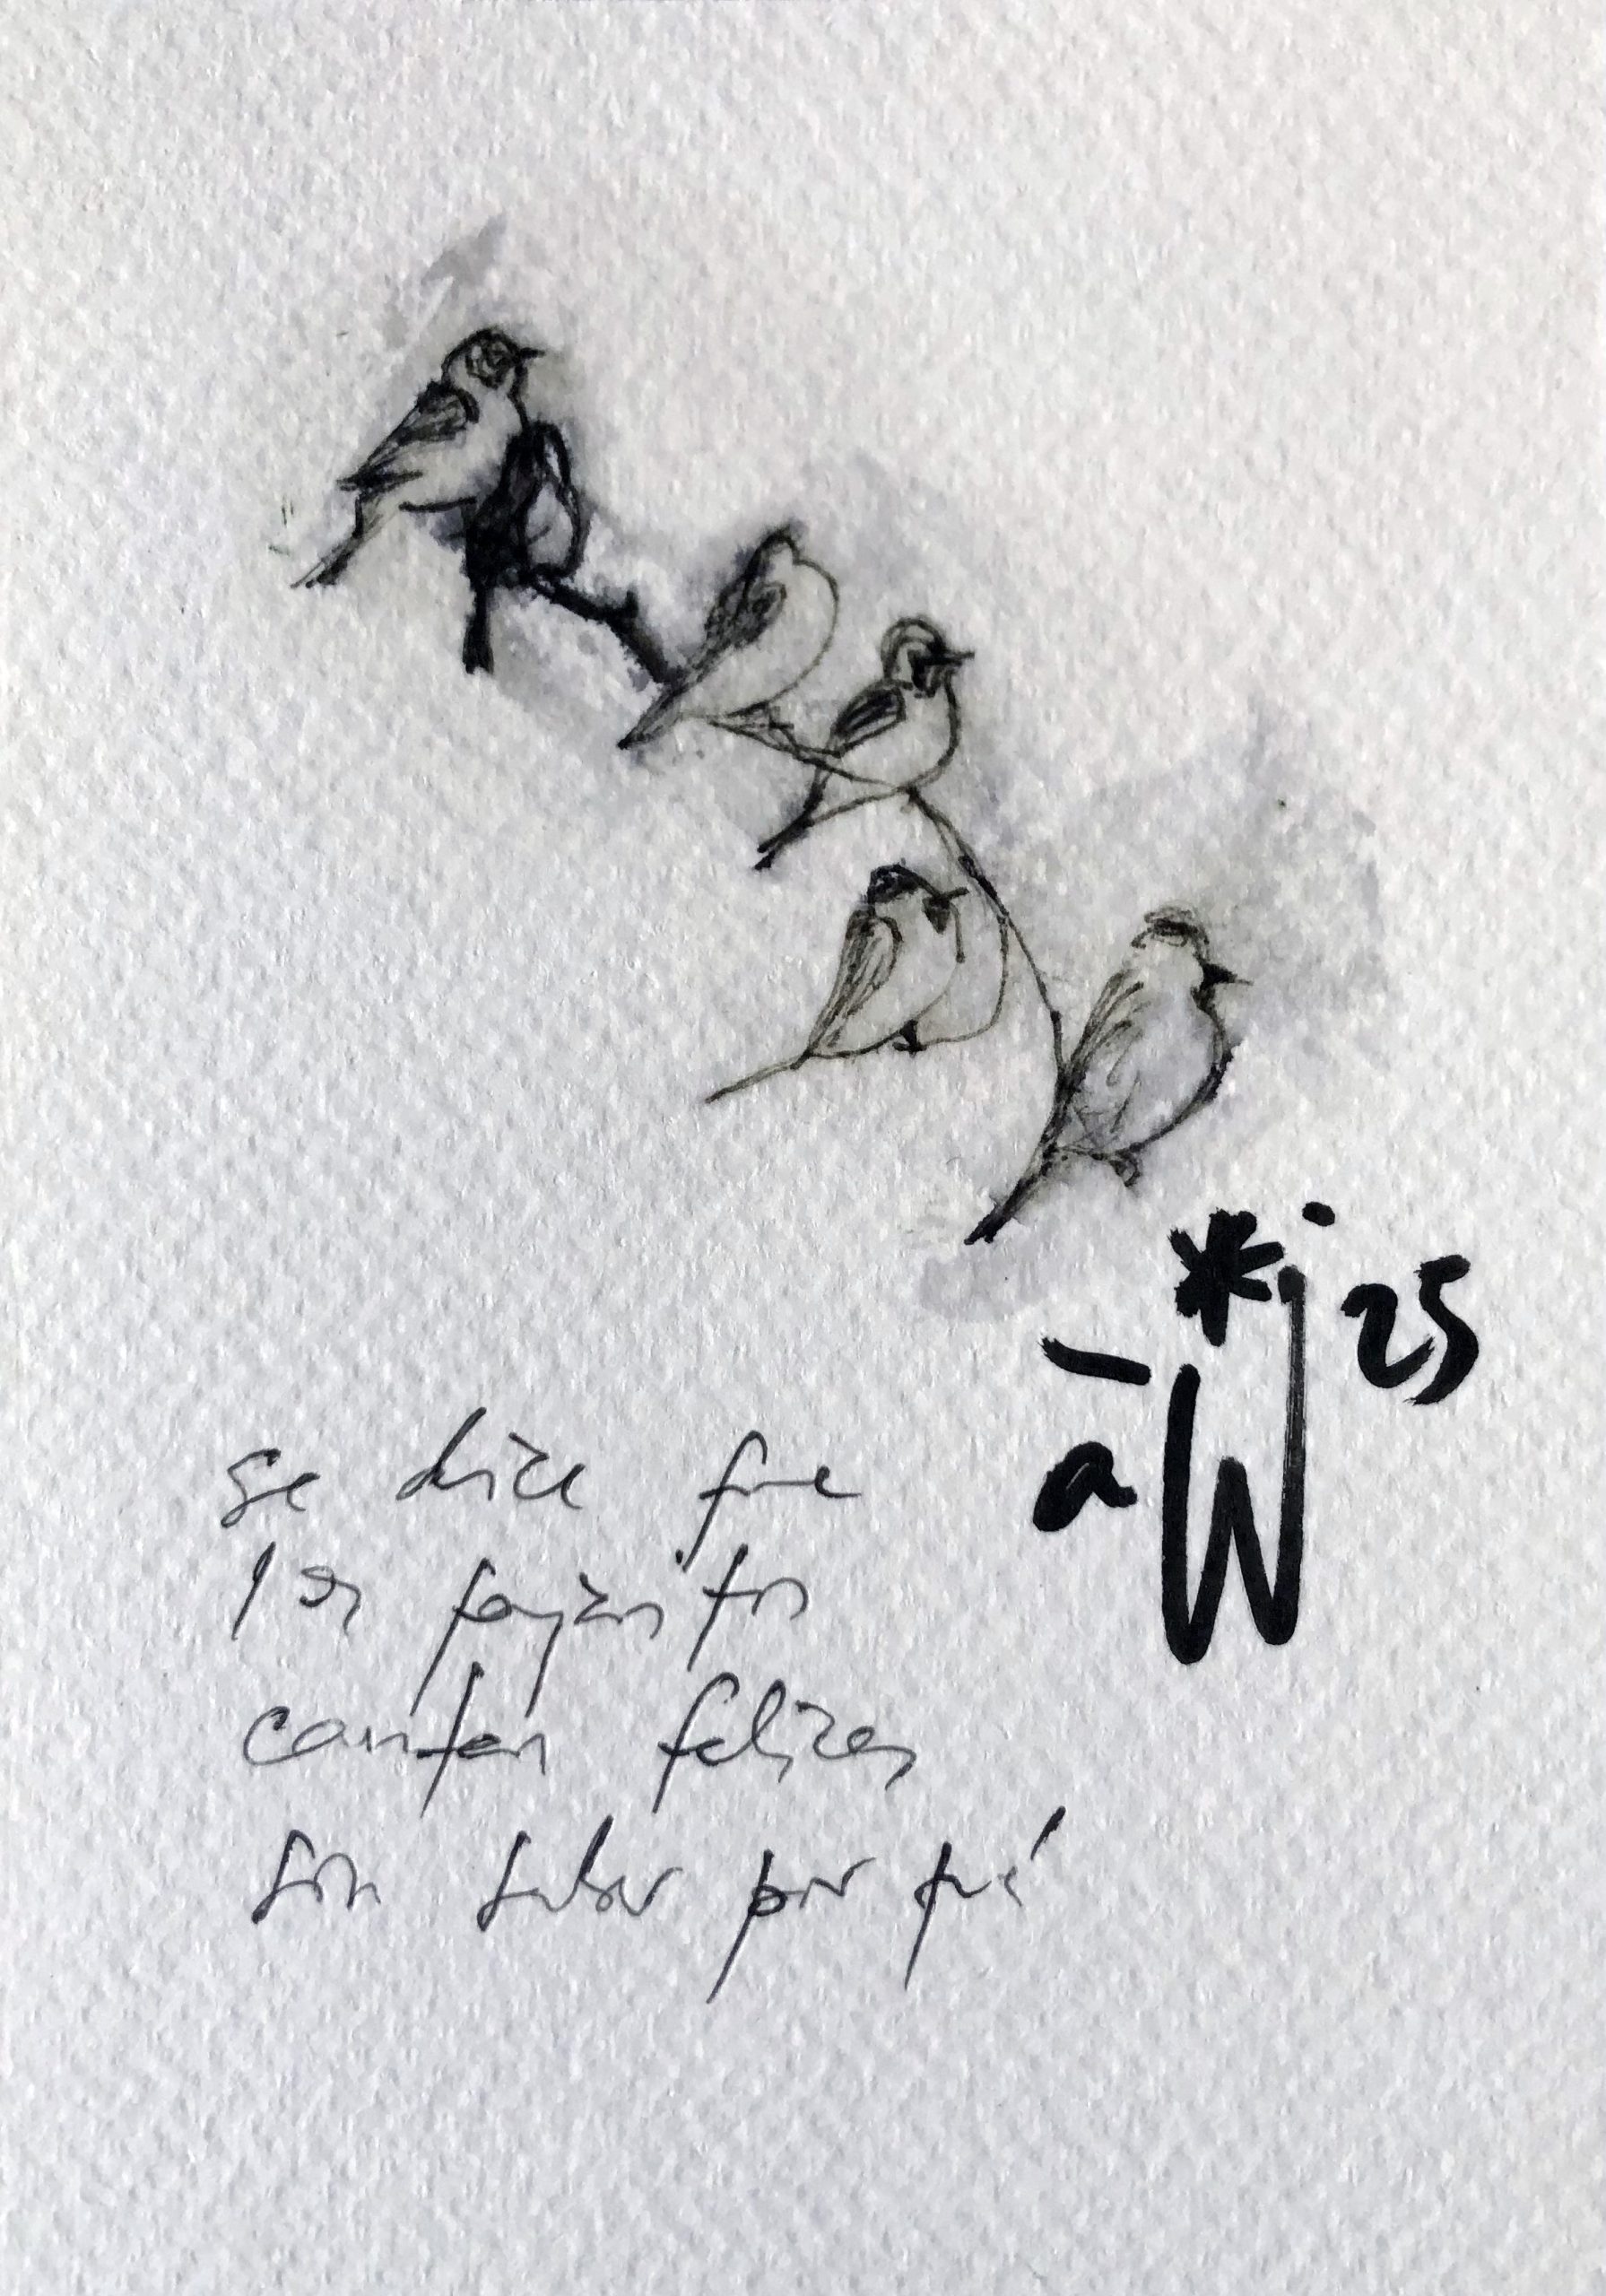 *j 25
a W
se dice que
los pajaritos
cantan felices
sin saber por qué